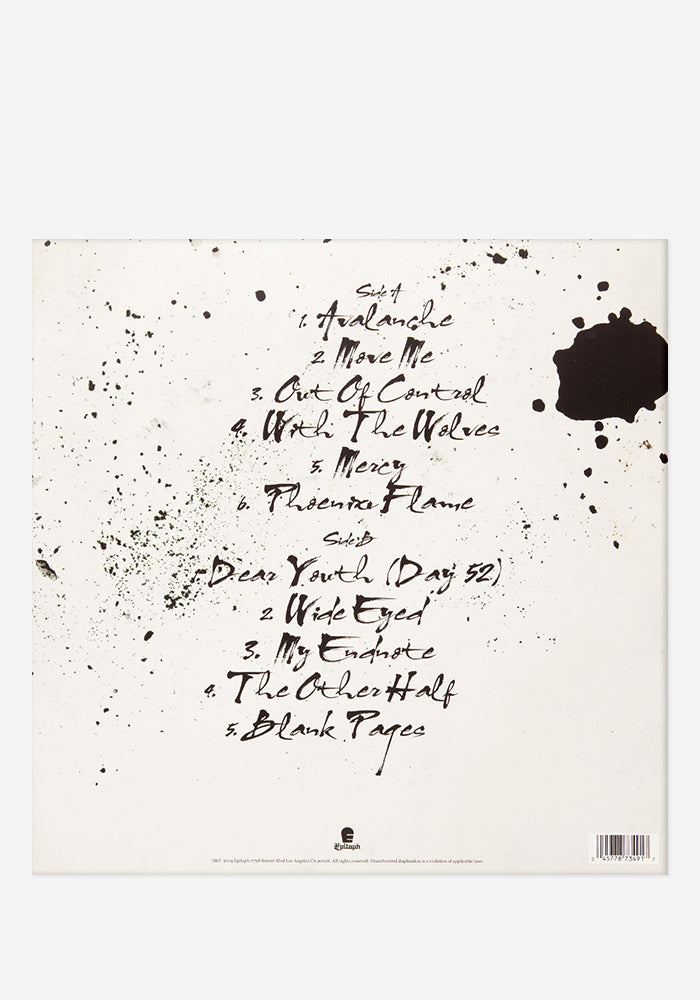 Side A
1. Avalanche
2. Move Me
3. Out Of Control
4. With The Wolves
5. Mercy
6. Phoenix Flame
Side B
1. Dear Youth (Day 52)
2. Wide Eyed
3. My Endnote
4. The Other Half
5. Blank Pages
Epitaph
℗© 2014 Epitaph 2798 Sunset Blvd Los Angeles CA 90026. All rights reserved. Unauthorized duplication is a violation of applicable laws.
0 45778 73491 7